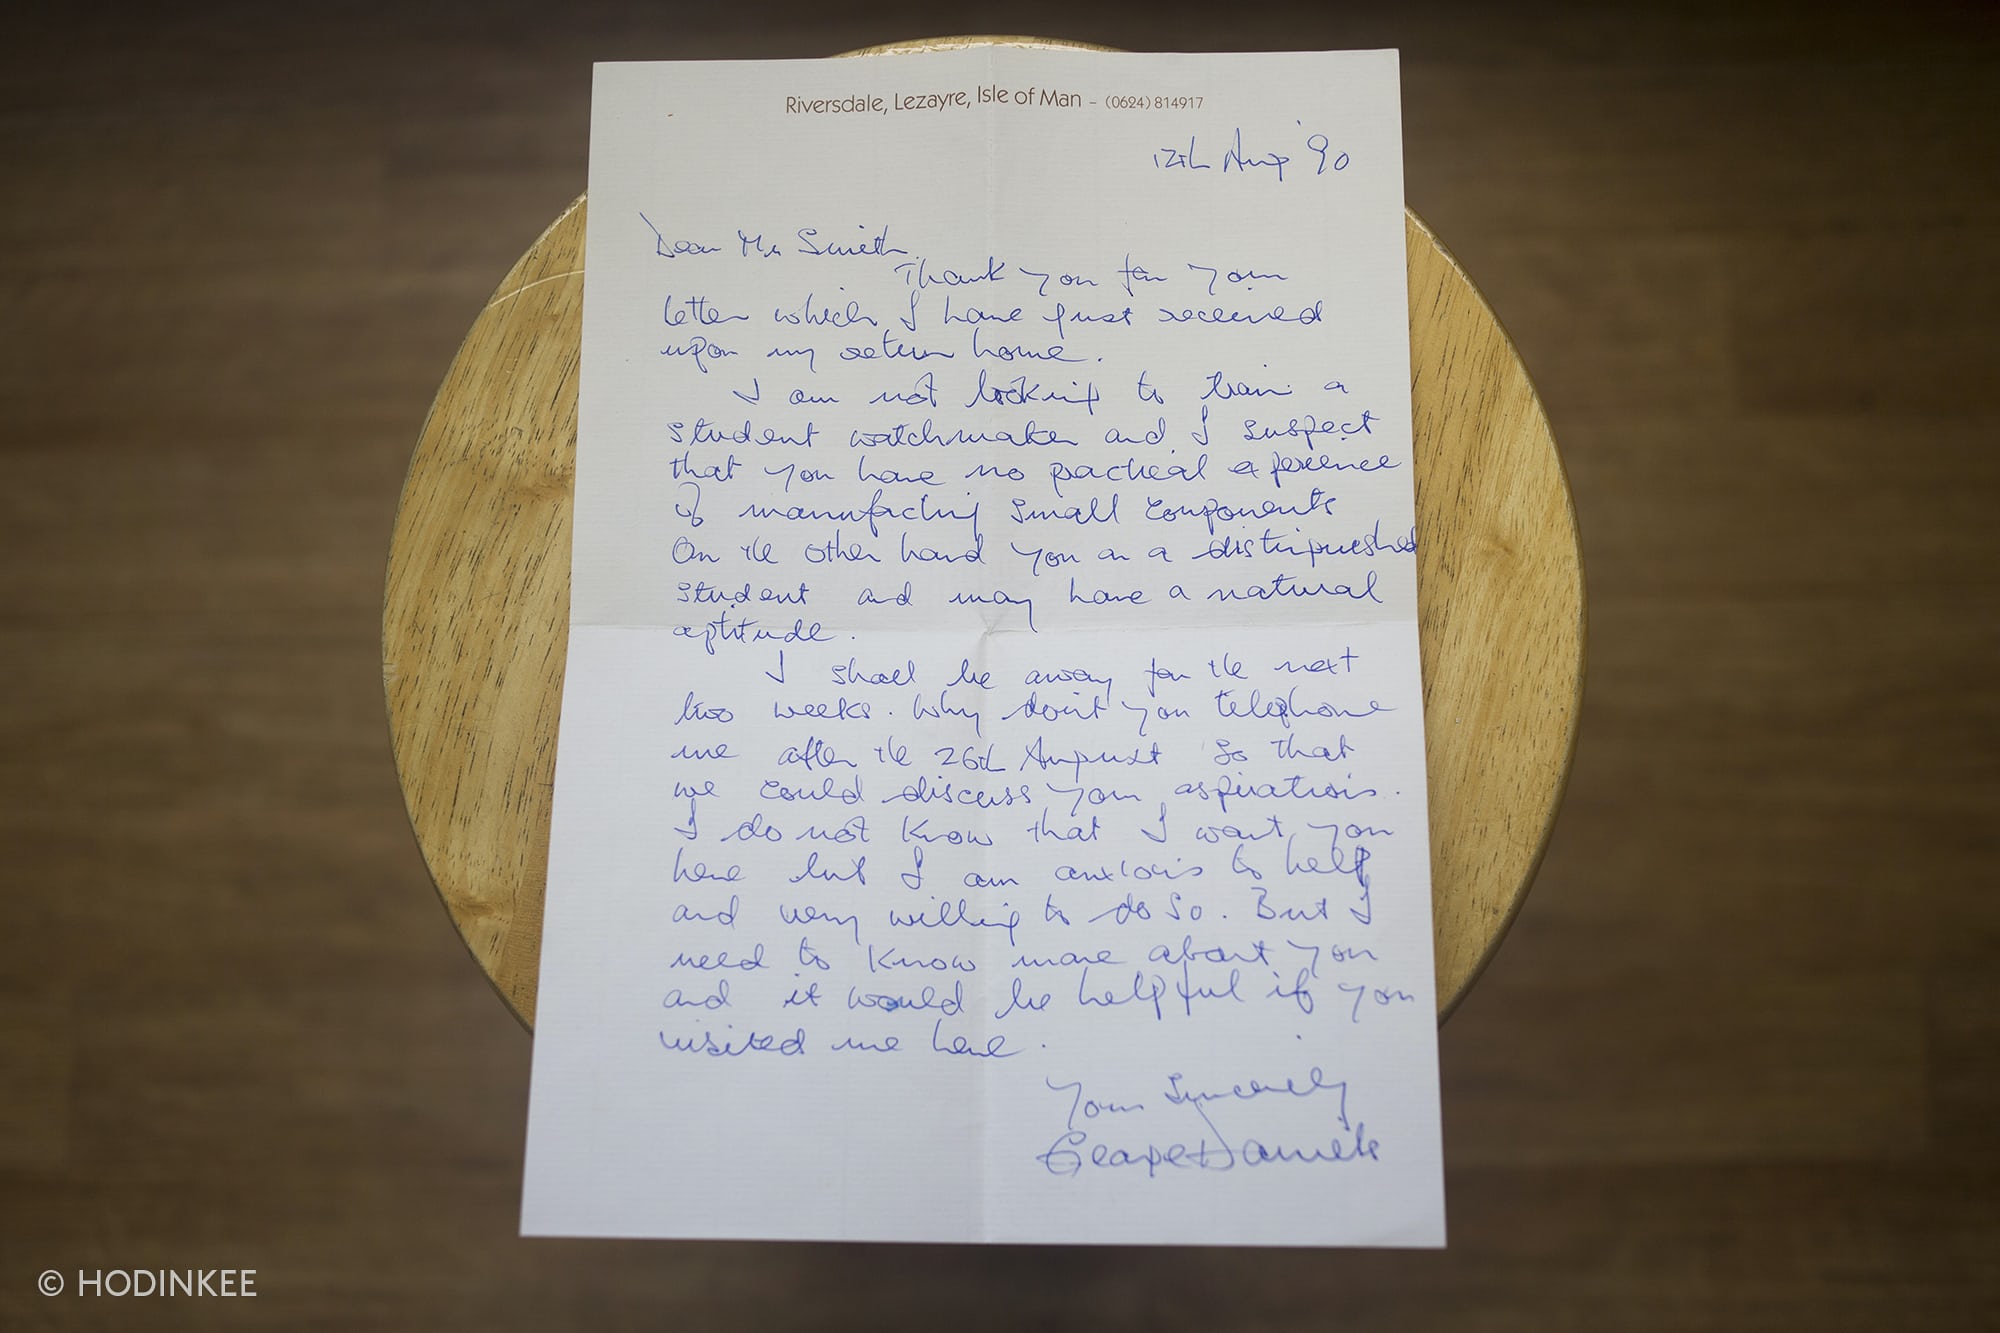 Riversdale, Lezayre, Isle of Man – (0624) 814917
12th Aug '90
Dear Mr Smith,
Thank you for your
letter which I have just received
upon my return home.
I am not looking to train a
student watchmaker and I suspect
that you have no practical experience
of manufacturing small components
On the other hand you are a distinguished
student and may have a natural
aptitude.
I shall be away for the next
two weeks. Why don't you telephone
me after the 26th August so that
we could discuss your aspirations.
I do not know that I want you
here but I am anxious to help
and very willing to do so. But I
need to know more about you
and it would be helpful if you
visited me here.
Yours Sincerely
George Daniels
© HODINKEE